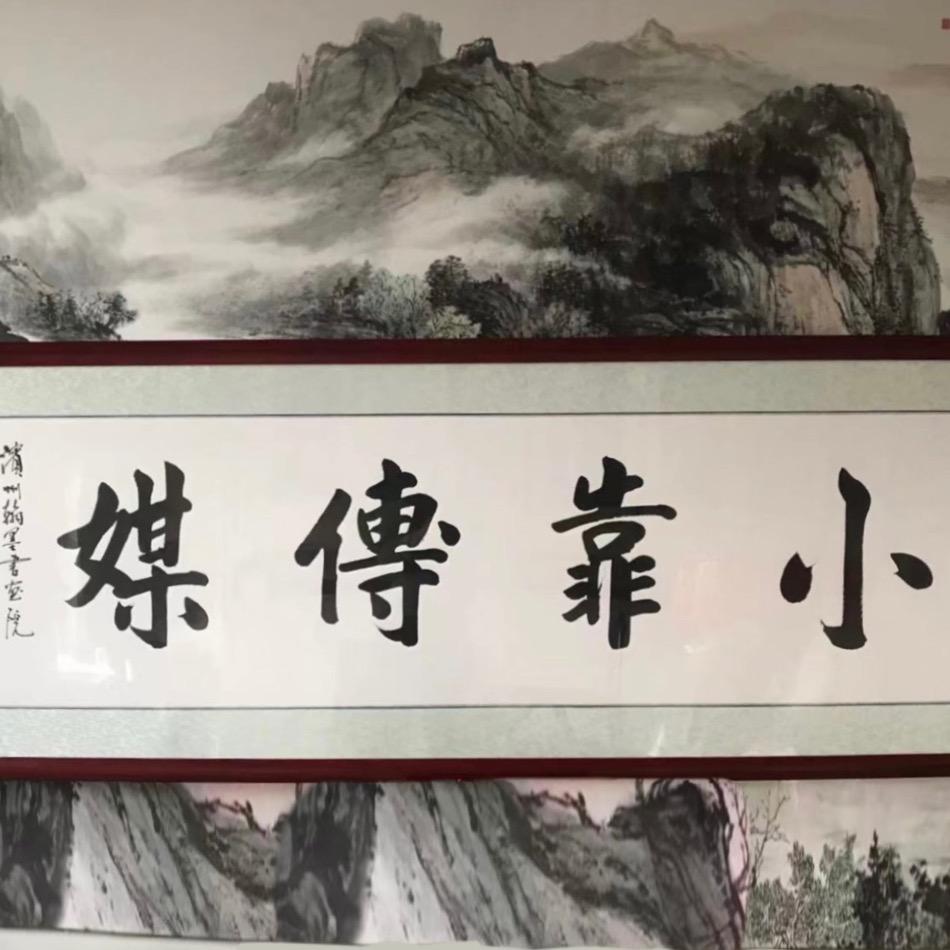 小靠傳媒
濱州翰墨書畫院